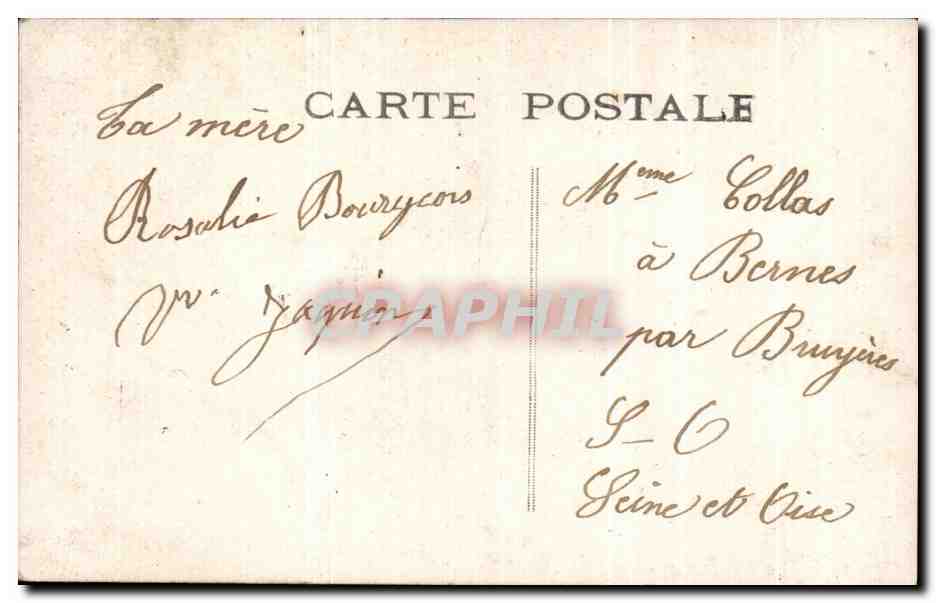 CARTE POSTALE
Ta mère
Rosalie Bourgeois
Vve Jaquin
CPAPHIL
Meme Collas
à Bernes
par Bruyères
S-O
Seine et Oise